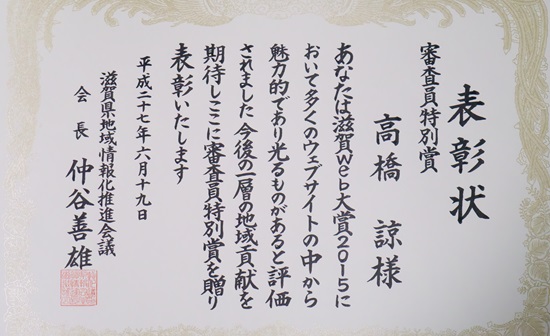 表彰状
審査員特別賞
高橋 諒 様
あなたは滋賀web大賞2015に
おいて多くのウェブサイトの中から
魅力的であり光るものがあると評価
されました 今後の一層の地域貢献を
期待しここに審査員特別賞を贈り
表彰いたします
平成二十七年六月十九日
滋賀県地域情報化推進会議
会長 仲谷善雄